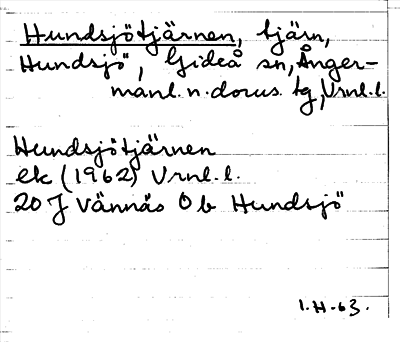 Hundsjötjärnen, tjärn,
Hundsjö, Gideå sn, Ånger-
manl. n. doms. tg, Vrnl. l.
Hundsjötjärnen
ek (1962) Vrnl. l.
20 J Vännäs Ob Hundsjö
I. H. 63.